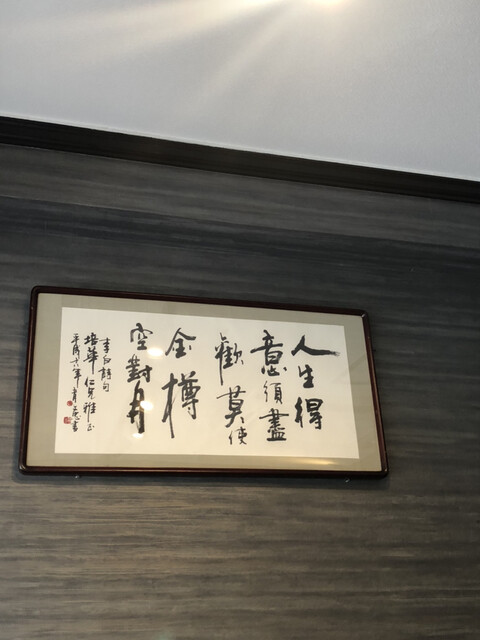 人生得
意須盡
歡莫使
金樽
空對月
李白詩句
培華仁兄雅正
平成十六年青